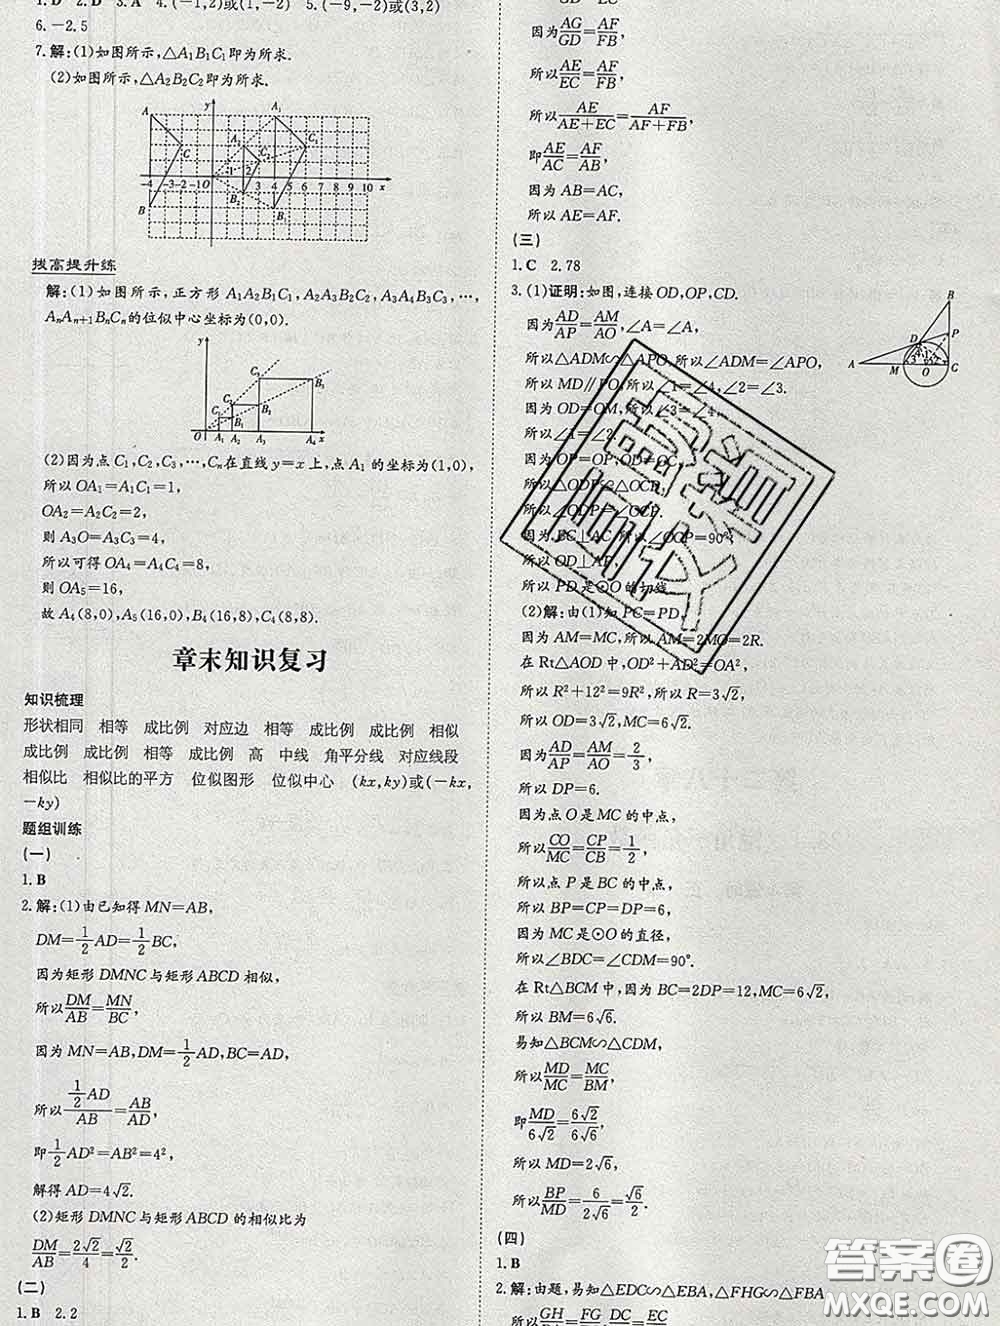 1. D 2. D 3. A 4. (-1,2)或(1,-2) 5. (-9,-2)或(3,2)
6. -2.5
7. 解:(1)如图所示,△A₁B₁C₁即为所求.
(2)如图所示,△A₂B₂C₂即为所求.
拔高提升练
解:(1)如图所示,正方形 A₁A₂B₁C₁,A₂A₃B₂C₂,A₃A₄B₃C₃,…,
AₙAₙ₊₁BₙCₙ的位似中心坐标为(0,0).
(2)因为点 C₁,C₂,C₃,…,Cₙ在直线 y=x 上,点 A₁的坐标为(1,0),
所以 OA₁=A₁C₁=1,
OA₂=A₂C₂=2,
则 A₃O=A₃C₃=4,
所以可得 OA₄=A₄C₄=8,
则 OA₅=16,
故 A₄(8,0),A₅(16,0),B₄(16,8),C₄(8,8).
章末知识复习
知识梳理
形状相同 相等 成比例 对应边 相等 成比例 成比例 相似
成比例 成比例 相等 成比例 高 中线 角平分线 对应线段
相似比 相似比的平方 位似图形 位似中心 (kx,ky)或(-kx,
-ky)
题组训练
(一)
1. B
2. 解:(1)由已知得 MN=AB,
DM=1/2 AD=1/2 BC,
因为矩形 DMNC 与矩形 ABCD 相似,
所以 DM/AB=MN/BC,
因为 MN=AB,DM=1/2 AD,BC=AD,
所以 (1/2 AD)/AB=AB/AD,
即 1/2 AD²=AB²=4²,
解得 AD=4√2.
(2)矩形 DMNC 与矩形 ABCD 的相似比为
DM/AB=2√2/4=√2/2.
(二)
1. B 2. 2
因为 AG/GD=AF/FB,
所以 AE/EC=AF/FB,
所以 AE/(AE+EC)=AF/(AF+FB),
即 AE/AC=AF/AB,
因为 AB=AC,
所以 AE=AF.
(三)
1. C 2. 78
3. (1)证明:如图,连接 OD,OP,CD.
因为 AD/AP=AM/AO,∠A=∠A,
所以△ADM∽△APO,所以∠ADM=∠APO,
所以 MD∥PO,所以∠1=∠4,∠2=∠3.
因为 OD=OM,所以∠3=∠4,
所以∠1=∠2.
因为 OP=OP,OD=OC,
所以△ODP≌△OCP,
所以∠ODP=∠OCP.
因为 BC⊥AC,所以∠OCP=90°,
所以 OD⊥AP,
所以 PD 是⊙O 的切线.
(2)解:由(1)知 PC=PD,
因为 AM=MC,所以 AM=2MO=2R.
在 Rt△AOD 中,OD²+AD²=OA²,
所以 R²+12²=9R²,所以 R=3√2,
所以 OD=3√2,MC=6√2.
因为 AD/AP=AM/AO=2/3,
所以 DP=6.
因为点 O 是 MC 的中点,
所以 CO/MC=CP/CB=1/2,
所以点 P 是 BC 的中点,
所以 BP=CP=DP=6,
因为 MC 是⊙O 的直径,
所以∠BDC=∠CDM=90°.
在 Rt△BCM 中,因为 BC=2DP=12,MC=6√2,
所以 BM=6√6.
易知△BCM∽△CDM,
所以 MD/MC=MC/BM,
即 MD/6√2=6√2/6√6,
所以 MD=2√6,
所以 BP/MD=6/2√6=√6/2.
(四)
1. B
2. 解:由题,易知△EDC∽△EBA,△FHG∽△FBA
所以 GH FG DC EC
答案圈
MXQE.COM